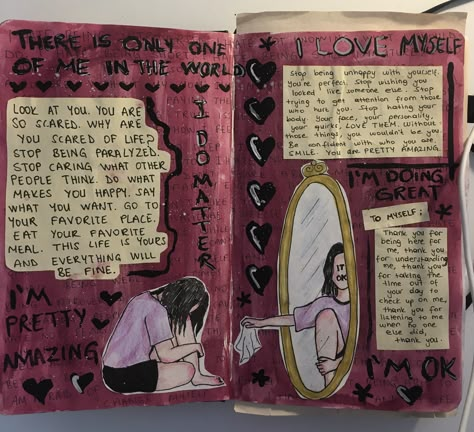 THERE IS ONLY ONE
OF ME IN THE WORLD
LOOK AT YOU. YOU ARE
SO SCARED. WHY ARE
YOU SCARED OF LIFE?
STOP BEING PARALYZED.
STOP CARING WHAT OTHER
PEOPLE THINK. DO WHAT
MAKES YOU HAPPY. SAY
WHAT YOU WANT. GO TO
YOUR FAVORITE PLACE.
EAT YOUR FAVORITE
MEAL. THIS LIFE IS YOURS
AND EVERYTHING WILL
BE FINE.
I DO MATTER
I'M
PRETTY
AMAZING
I LOVE MYSELF
Stop being unhappy with yourself.
You're perfect. Stop wishing you
looked like someone else. Stop
trying to get attention from those
who hurt you. Stop hating your
body. Your face, your personality,
your quirks. LOVE THEM. Without
those things, you wouldn't be you.
Be confident with who you are.
SMILE. YOU ARE PRETTY AMAZING.
I'M DOING
GREAT
TO MYSELF:
Thank you for
being here for
me, thank you
for understanding
me, thank you
for taking the
time out of
your day to
check up on me,
thank you for
listening to me
when no one
else did,
thank you.
OK
I'M OK